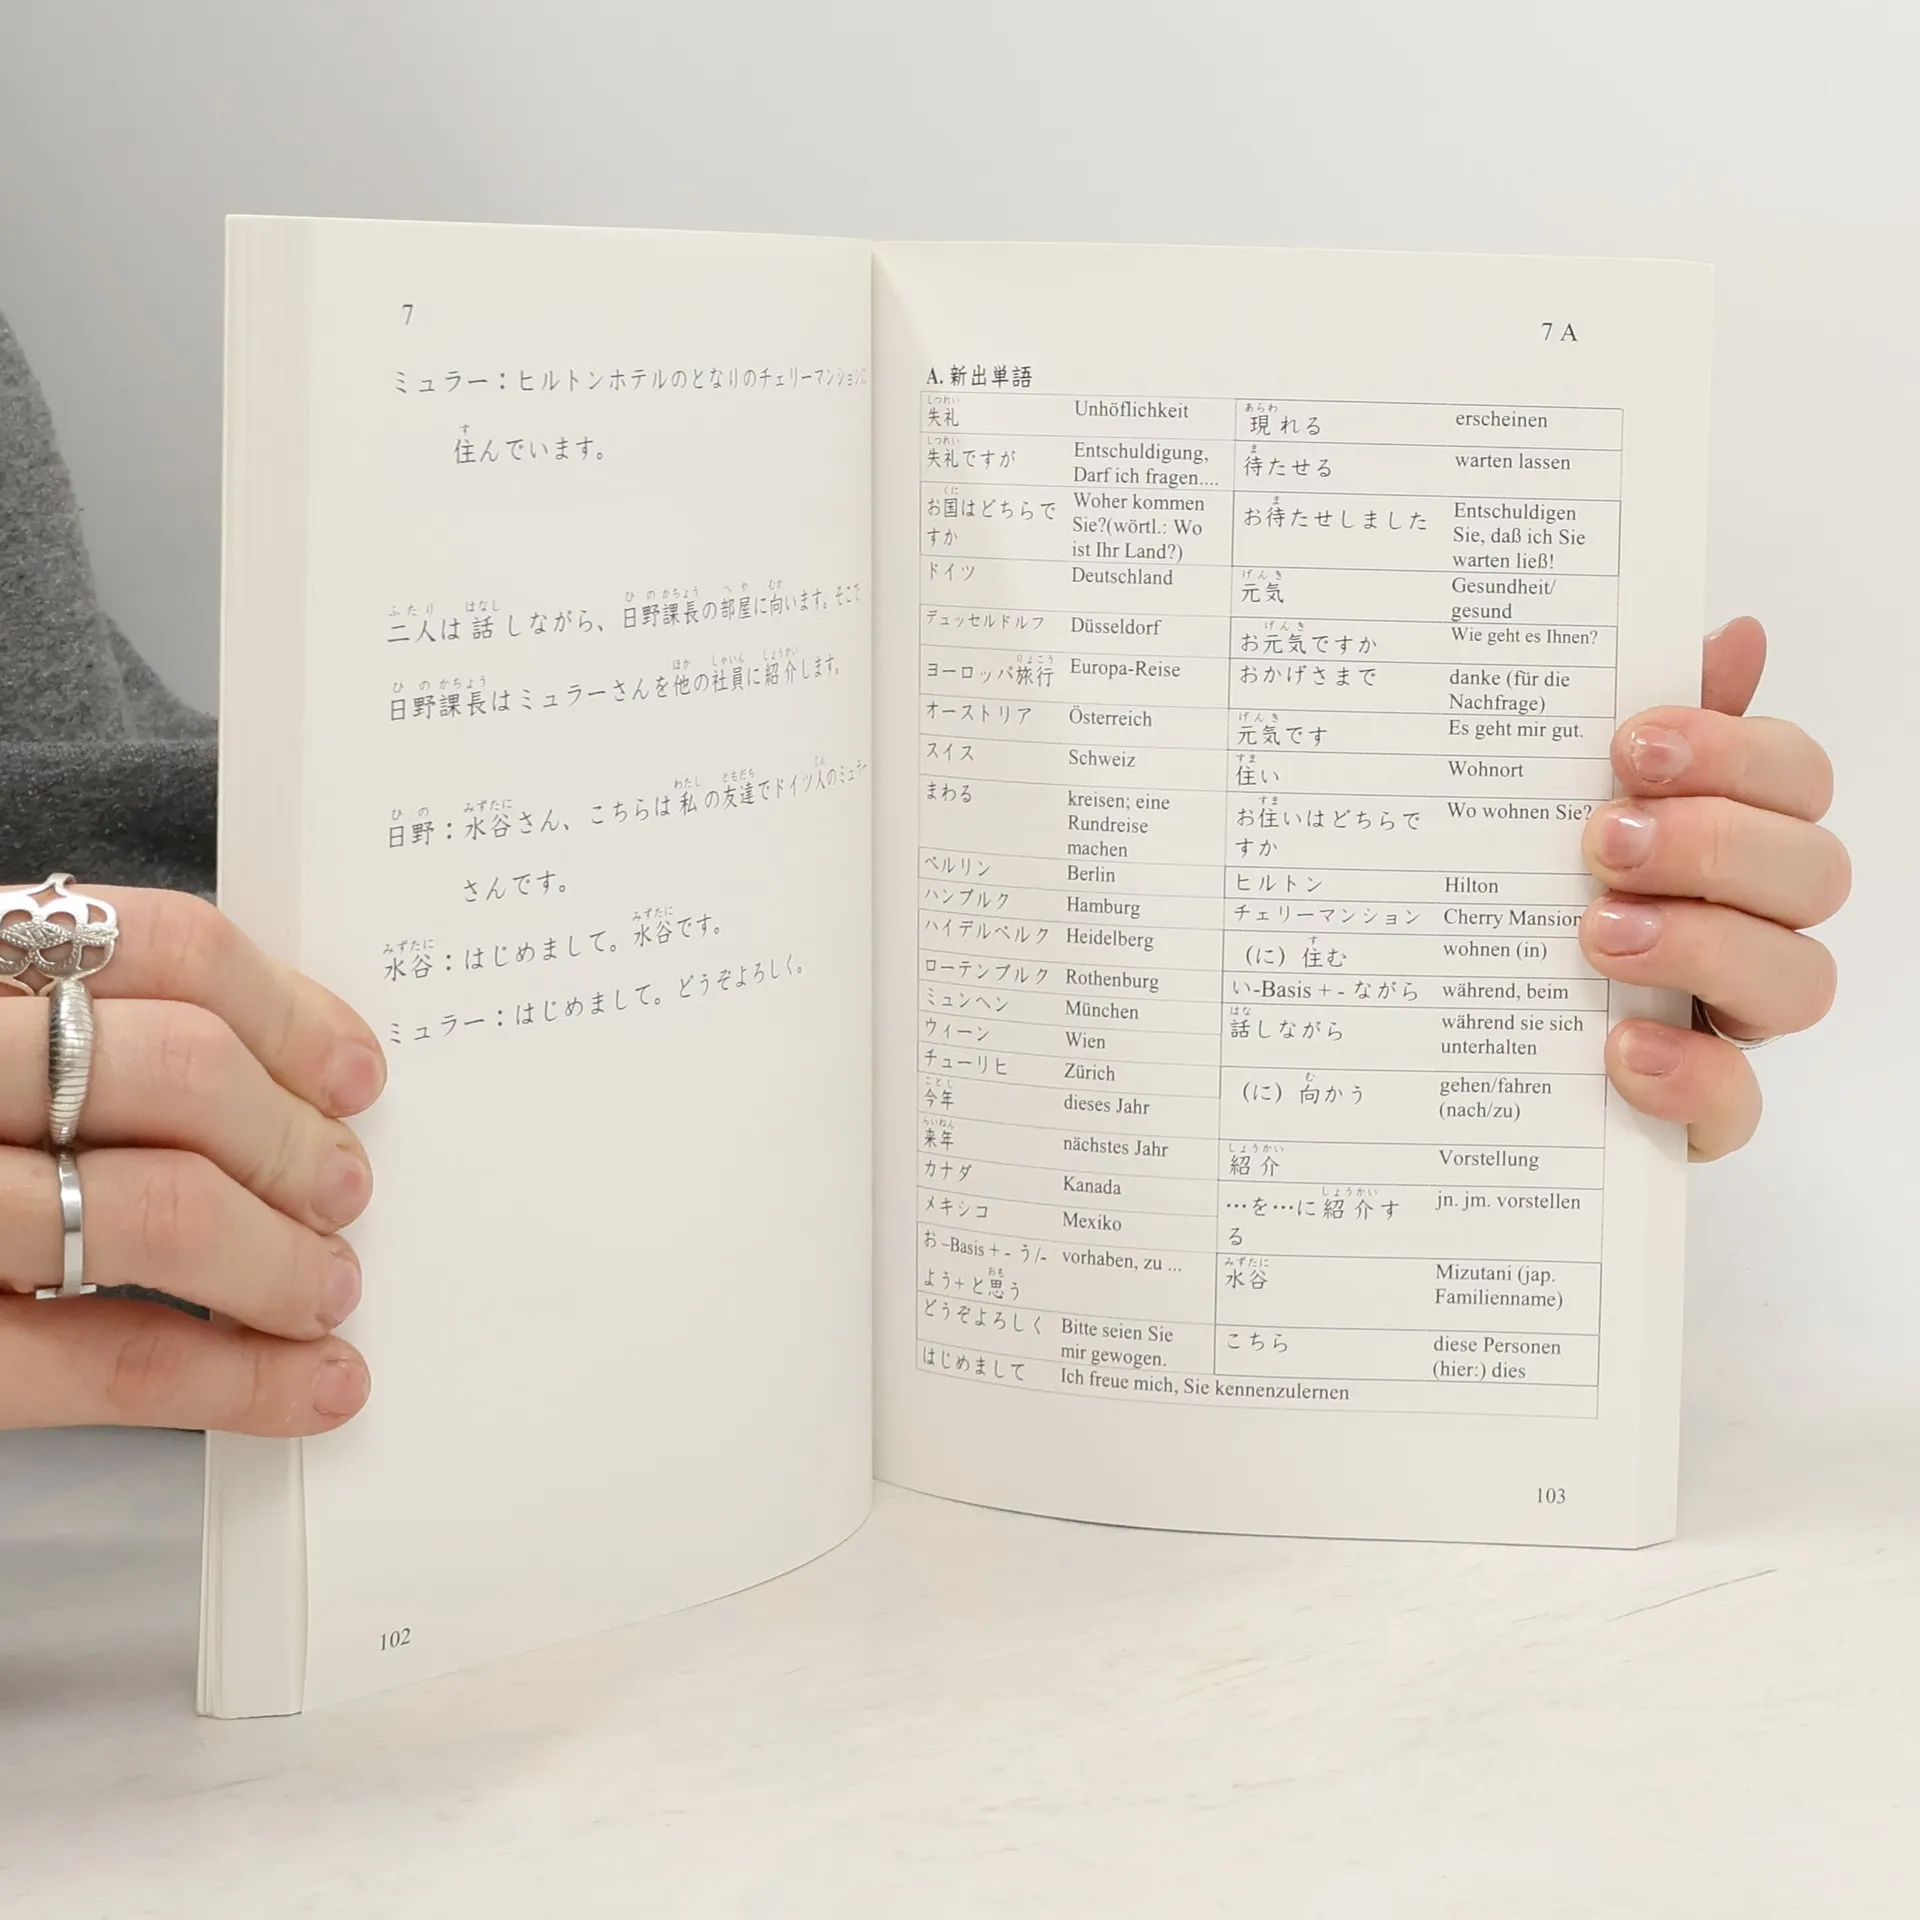 7
ミュラー：ヒルトンホテルのとなりのチェリーマンション
住んでいます。
二人は話しながら、日野課長の部屋に向います。そこで
日野課長はミュラーさんを他の社員に紹介します。
日野：水谷さん、こちらは私の友達でドイツ人のミュラー
さんです。
水谷：はじめまして。水谷です。
ミュラー：はじめまして。どうぞよろしく。
102
7 A
A. 新出単語
失礼 Unhöflichkeit
失礼ですが Entschuldigung,
Darf ich fragen....
お国はどちらで Woher kommen
すか Sie?(wörtl.: Wo
ist Ihr Land?)
ドイツ Deutschland
デュッセルドルフ Düsseldorf
ヨーロッパ旅行 Europa-Reise
オーストリア Österreich
スイス Schweiz
まわる kreisen; eine
Rundreise
machen
ベルリン Berlin
ハンブルク Hamburg
ハイデルベルク Heidelberg
ローテンブルク Rothenburg
ミュンヘン München
ウィーン Wien
チューリヒ Zürich
今年 dieses Jahr
来年 nächstes Jahr
カナダ Kanada
メキシコ Mexiko
お-Basis + - う/- vorhaben, zu ...
よう+と思う
どうぞよろしく Bitte seien Sie
mir gewogen.
はじめまして Ich freue mich, Sie kennenzulernen
現れる erscheinen
待たせる warten lassen
お待たせしました Entschuldigen
Sie, daß ich Sie
warten ließ!
元気 Gesundheit/
gesund
お元気ですか Wie geht es Ihnen?
おかげさまで danke (für die
Nachfrage)
元気です Es geht mir gut.
住い Wohnort
お住いはどちらで Wo wohnen Sie?
すか
ヒルトン Hilton
チェリーマンション Cherry Mansion
（に）住む wohnen (in)
い-Basis + - ながら während, beim
話しながら während sie sich
unterhalten
（に）向かう gehen/fahren
(nach/zu)
紹介 Vorstellung
…を…に紹介す jn. jm. vorstellen
る
水谷 Mizutani (jap.
Familienname)
こちら diese Personen
(hier:) dies
103